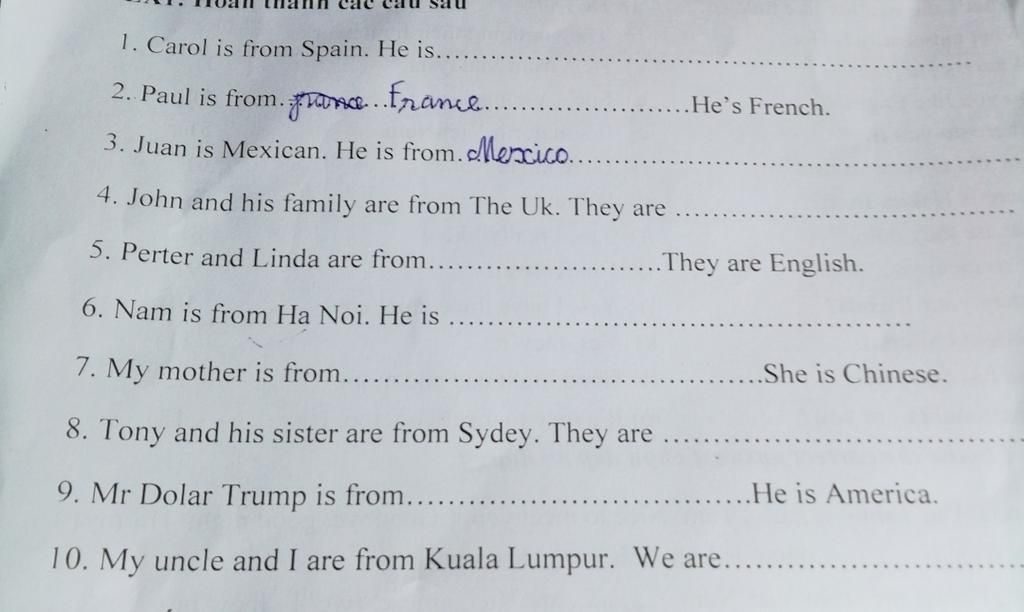 EX1: Hoàn thành các câu sau
1. Carol is from Spain. He is..............................
2. Paul is from. france...France........................He's French.
3. Juan is Mexican. He is from.Mexico..............................
4. John and his family are from The Uk. They are ..............................
5. Perter and Linda are from........................They are English.
6. Nam is from Ha Noi. He is ..............................
7. My mother is from..............................She is Chinese.
8. Tony and his sister are from Sydey. They are ..............................
9. Mr Dolar Trump is from..............................He is America.
10. My uncle and I are from Kuala Lumpur. We are..............................